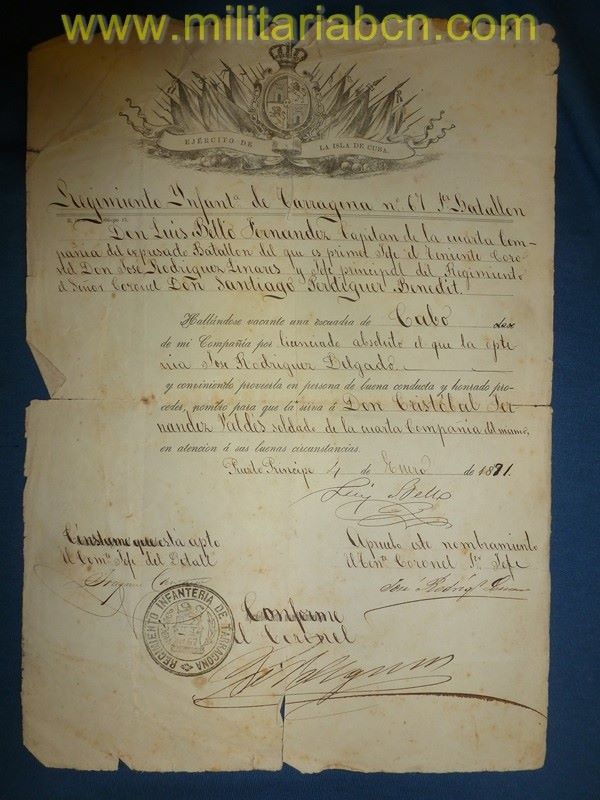 www.militariabcn.com
EJÉRCITO DE LA ISLA DE CUBA.
Regimiento Infantª de Tarragona nº 67 1er Batallon
Don Luis Bello Fernandez Capitan de la cuarta Com-
pañia del espresado Batallon del que es primer Jefe el Teniente Coro-
nel Don José Rodriguez Linares y Jefe principal del Regimiento
el Señor Coronel Don Santiago Benedit.
Hallándose vacante una escuadra de Cabo
de mi Compañia por licenciado absoluto el que la
José Rodriguez Delgado
y conviniendo proveerla en persona de buena conducta y honrado pro-
ceder, nombro para que la sirva á Don Cristóbal Fer-
nandez Valdés soldado de la cuarta Compañia del mismo,
en atencion á sus buenas circunstancias.
Puerto Príncipe 4 de Enero de 1881.
Luis Bello
Cónstame que está apto
El Comte Jefe del Detall
Apruebo este nombramiento
El Tene Coronel 1er Jefe
José Rodrigz
Conforme
El Coronel
REGIMIENTO INFANTERIA DE TARRAGONA